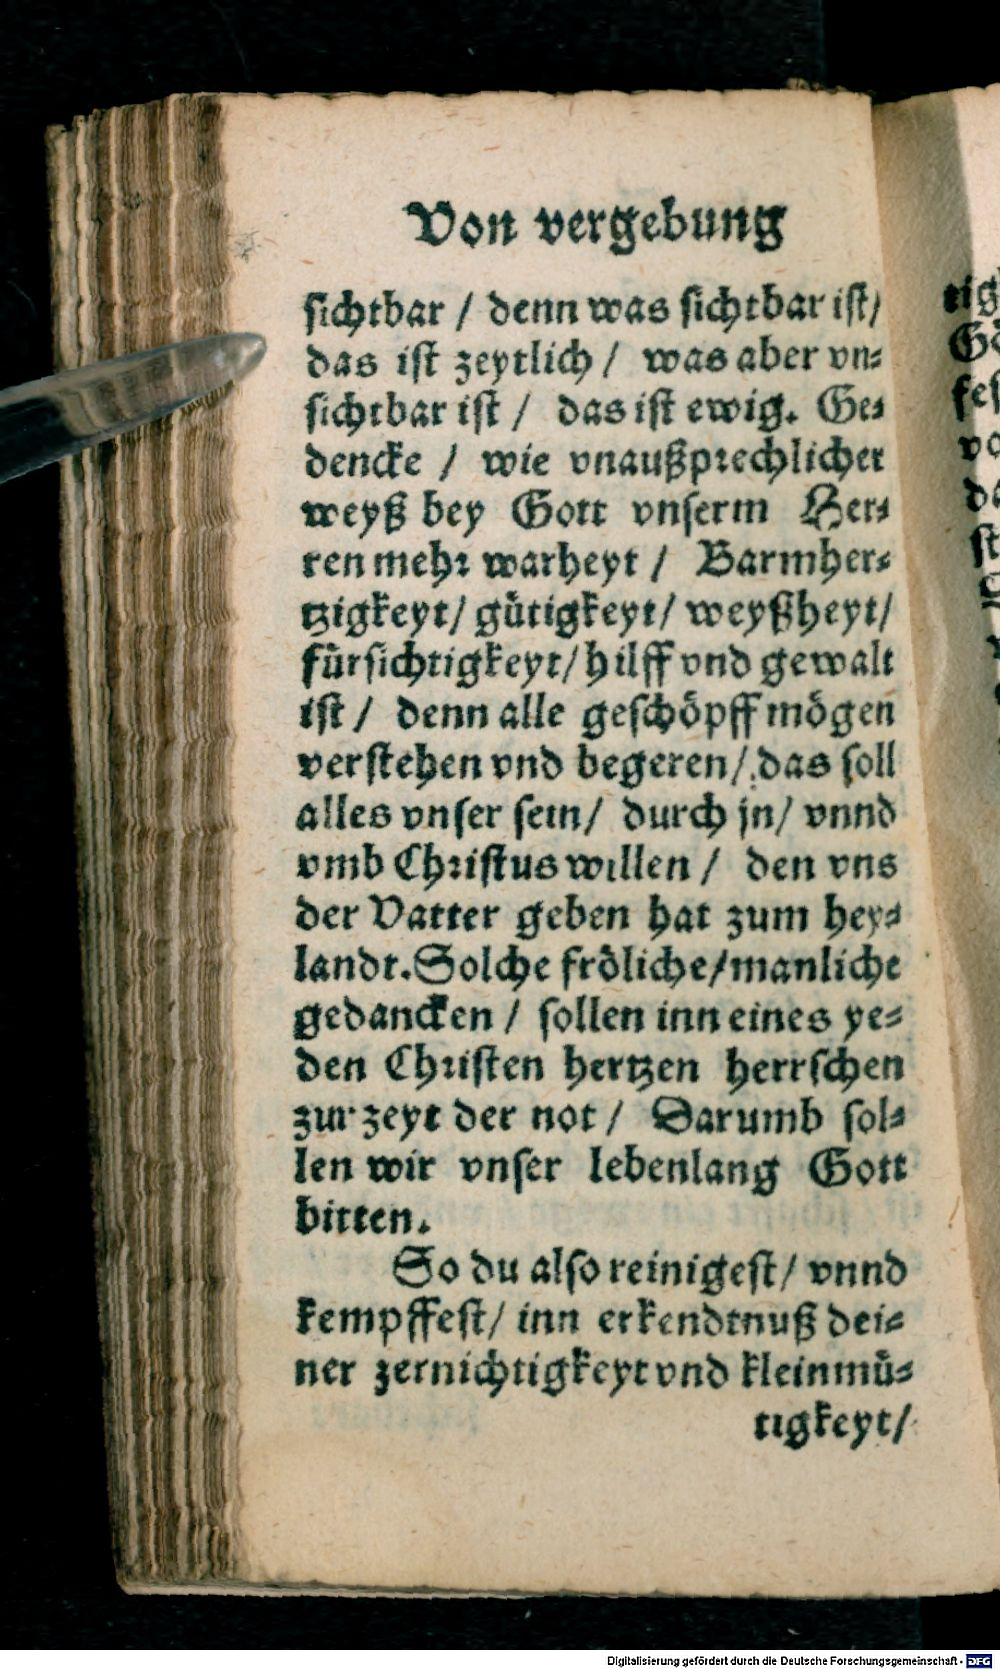 Von vergebung
sichtbar / denn was sichtbar ist/
das ist zeytlich / was aber vn⸗
sichtbar ist / das ist ewig. Ge⸗
dencke / wie vnaußprechlicher
weyß bey Gott vnserm Her⸗
ren mehr warheyt / Barmher⸗
tzigkeyt/ gütigkeyt/ weyßheyt/
fürsichtigkeyt/ hilff vnd gewalt
ist / denn alle geschöpff mögen
verstehen vnd begeren/ das soll
alles vnser sein/ durch jn/ vnnd
vmb Christus willen / den vns
der Vatter geben hat zum hey⸗
landt. Solche fröliche/manliche
gedancken / sollen inn eines ye⸗
den Christen hertzen herrschen
zur zeyt der not / Darumb sol⸗
len wir vnser lebenlang Gott
bitten.
So du also reinigest/ vnnd
kempffest/ inn erkendtnuß dei⸗
ner zernichtigkeyt vnd kleinmü⸗
tigkeyt/
Digitalisierung gefördert durch die Deutsche Forschungsgemeinschaft - DFG